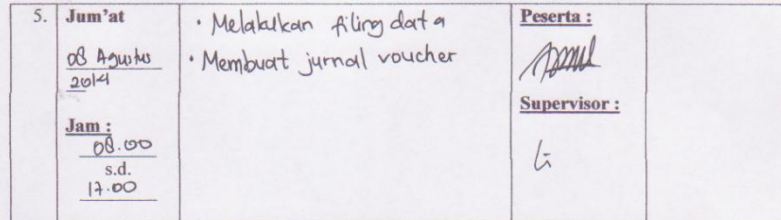 5.
Jum'at
08 Agustus
2014
Jam :
08.00
s.d.
17.00
• Melakukan filing data
• Membuat jurnal voucher
Peserta :
Supervisor :